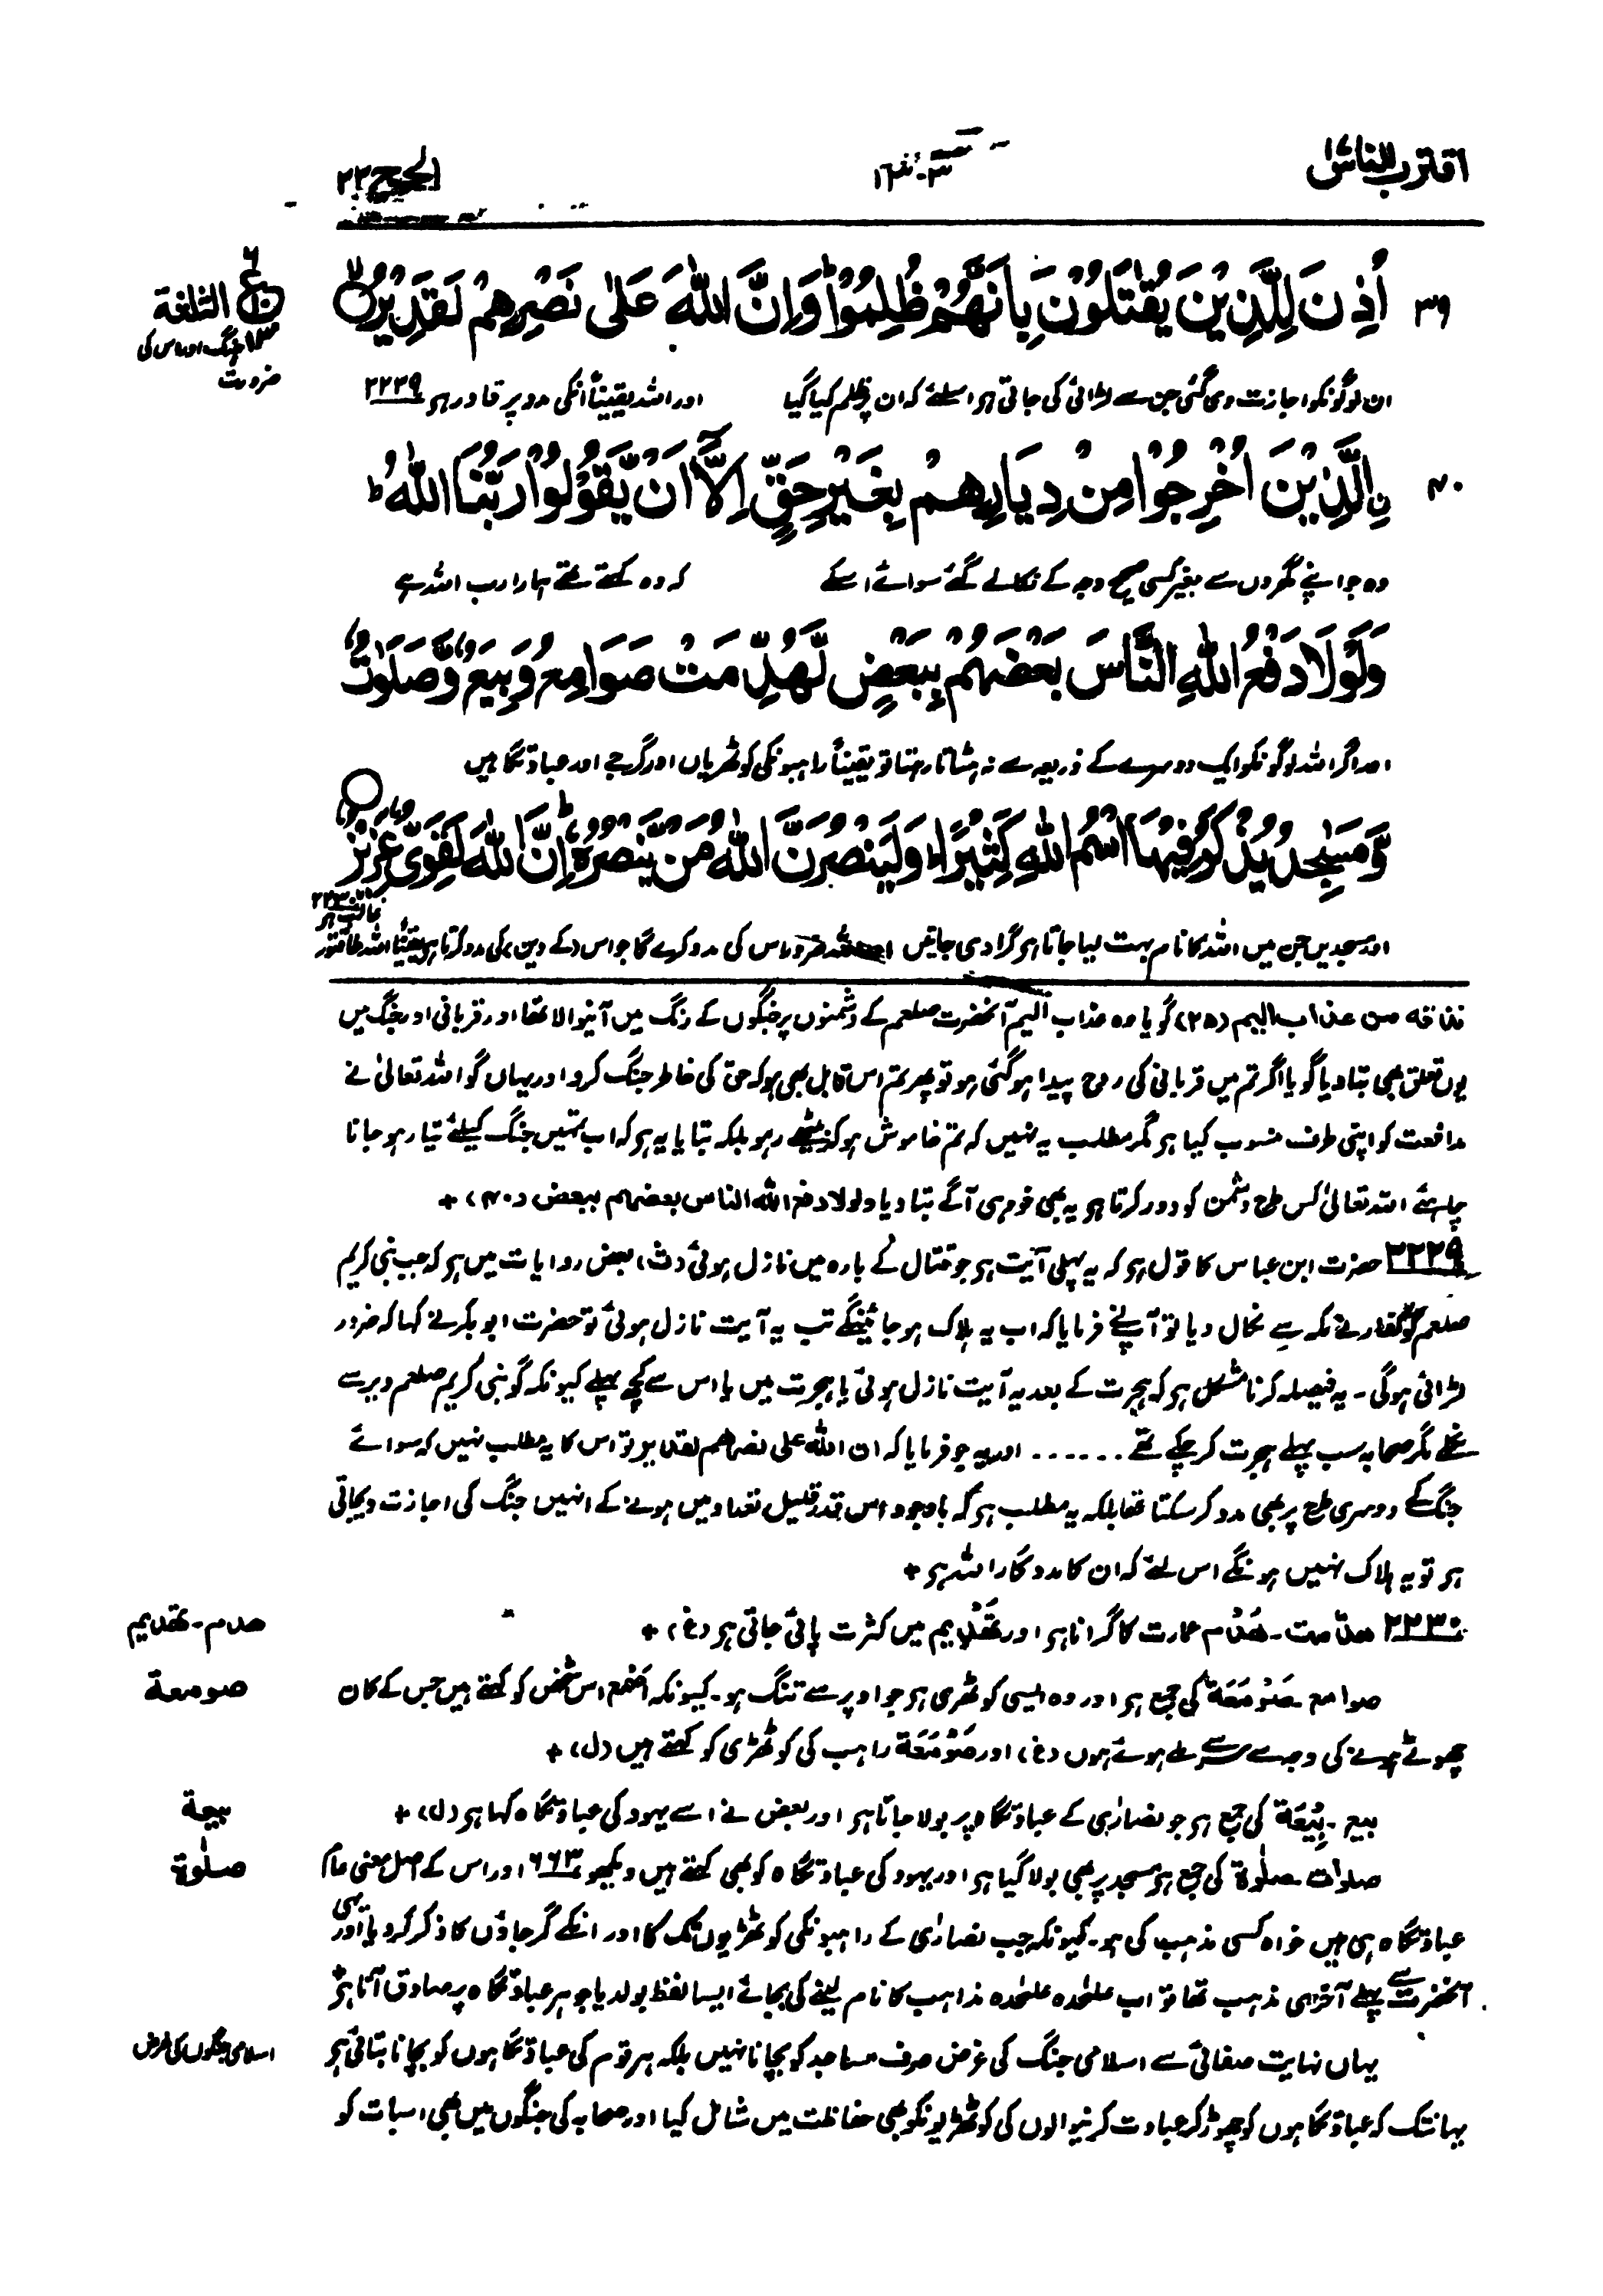 اقترب للناس ١٧
الحج ٢٢
٣٩ اُذِنَ لِلَّذِيْنَ يُقٰتَلُوْنَ بِاَنَّهُمْ ظُلِمُوْا ؕ وَاِنَّ اللّٰهَ عَلٰى نَصْرِهِمْ لَقَدِيْرُۙ
ع ٦ الثلثة
١٣ جنگ اور اس کی
ضرورت
ان لوگونکو اجازت دی گئی جن سے لڑائی کی جاتی ہر اسلئے کہ ان پر ظلم کیا گیا اور اللہ یقیناً انکی مدد پر قادر ہر ٢٢٢٩
٤٠ ۨالَّذِيْنَ اُخْرِجُوْا مِنْ دِيَارِهِمْ بِغَيْرِ حَقٍّ اِلَّاۤ اَنْ يَّقُوْلُوْا رَبُّنَا اللّٰهُ ؕ
وہ جو اپنے گھروں سے بغیر کسی صحیح وجہ کے نکالے گئے سوائے اسکے کہ وہ کہتے تھے ہمارا رب اللہ ہے
وَلَوْلَا دَفْعُ اللّٰهِ النَّاسَ بَعْضَهُمْ بِبَعْضٍ لَّهُدِّمَتْ صَوَامِعُ وَبِيَعٌ وَّصَلَوٰتٌ
اور اگر اللہ لوگونکو ایک دوسرے کے ذریعہ سے نہ ہٹاتا رہتا تو یقیناً راہبونکی کوٹھریاں اور گرجے اور عبادتگاہیں
وَّمَسٰجِدُ يُذْكَرُ فِيْهَا اسْمُ اللّٰهِ كَثِيْرًا ؕ وَلَيَنْصُرَنَّ اللّٰهُ مَنْ يَّنْصُرُهٗ ؕ اِنَّ اللّٰهَ لَقَوِيٌّ عَزِيْزٌ
اور مسجدیں جن میں اللہ کا نام بہت لیا جاتا ہر گرا دی جاتیں اور اللہ ضرور اس کی مدد کرے گا جو اس (کے دین) کی مدد کرتا ہر یقیناً اللہ طاقتور
غالب ہر ٢٢٣٠
نذقه من عذاب اليم (٢٥) گویا وہ عذاب الیم آنحضرت صلعم کے دشمنوں پر جنگوں کے رنگ میں آنیوالا تھا اور قربانی اور جنگ میں
یوں تعلق بھی بتا دیا گویا اگر تم میں قربانی کی روح پیدا ہو گئی ہو تو پھر تم اس قابل بھی ہو کہ حق کی خاطر جنگ کرو اور یہاں گو اللہ تعالیٰ نے
مدافعت کو اپنی طرف منسوب کیا ہر مگر مطلب یہ نہیں کہ تم خاموش ہو کر بیٹھے رہو بلکہ بتایا یہ ہر کہ اب تمہیں جنگ کیلئے تیار ہو جانا
چاہئے اللہ تعالیٰ کس طرح دشمن کو دور کرتا ہر یہ بھی خود ہی آگے بتا دیا ولولا دفع الله الناس بعضهم ببعض (٤٠) +
٢٢٢٩ حضرت ابن عباس کا قول ہر کہ یہ پہلی آیت ہر جو قتال کے بارہ میں نازل ہوئی (ث) بعض روایات میں ہر کہ جب نبی کریم
صلعم کو کفار نے مکہ سے نکال دیا تو آپنے فرمایا کہ اب یہ ہلاک ہو جائینگے تب یہ آیت نازل ہوئی تو حضرت ابو بکر نے کہا کہ ضرور
لڑائی ہوگی - یہ فیصلہ کرنا مشکل ہر کہ ہجرت کے بعد یہ آیت نازل ہوئی یا ہجرت میں یا اس سے کچھ پہلے کیونکہ گو نبی کریم صلعم دیر سے
نکلے مگر صحابہ سب پہلے ہجرت کر چکے تھے ...... اور یہ جو فرمایا کہ ان الله على نصرهم لقدير تو اس کا یہ مطلب نہیں کہ سوائے
جنگ کے دوسری طرح پر بھی مدد کر سکتا تھا بلکہ یہ مطلب ہر کہ باوجود اس قدر قلیل تعداد میں ہونے کے انہیں جنگ کی اجازت دیجاتی
ہر تو یہ ہلاک نہیں ہونگے اس لئے کہ ان کا مددگار اللہ ہر +
هدم - تهديم
٢٢٣٠ هدّمت - هَدْم عمارت کا گرانا ہر اور تَهْدِیم میں کثرت پائی جاتی ہر (غ) +
صومعة
صوامع - صَوْمَعَة کی جمع ہر اور وہ ایسی کوٹھری ہر جو اوپر سے تنگ ہو - کیونکہ اَصْمَع اس شخص کو کہتے ہیں جس کے کان
چھوٹے ہونے کی وجہ سے سر سے ملے ہوئے ہوں (غ) اور صَوْمَعَة راہب کی کوٹھڑی کو کہتے ہیں (ل) +
بيعة
بيع - بِيْعَة کی جمع ہر جو نصاریٰ کے عبادتگاہ پر بولا جاتا ہر اور بعض نے اسے یہود کی عبادتگاہ کہا ہر (ل) +
صلوٰة
صلوات - صلوٰة کی جمع ہر مسجد پر بھی بولا گیا ہر اور یہود کی عبادتگاہ کو بھی کہتے ہیں دیکھو ٦٦٣ اور اس کے اصل معنی عام
عبادتگاہ ہی ہیں خواہ کسی مذہب کی ہو - کیونکہ جب نصاریٰ کے راہبونکی کوٹھڑیوں تک کا اور انکے گرجاؤں کا ذکر کر دیا اور یہی
آنحضرت سے پہلے آخری مذہب تھا تو اب علٰحدہ علٰحدہ مذاہب کا نام لینے کی بجائے ایسا لفظ بولدیا جو ہر عبادتگاہ پر صادق آتا ہر +
اسلامی جنگوں کی غرض
یہاں نہایت صفائی سے اسلامی جنگ کی غرض صرف مساجد کو بچانا نہیں بلکہ ہر قوم کی عبادتگاہوں کو بچانا بتائی ہر
یہانتک کہ عبادتگاہوں کو چھوڑ کر عبادت کرنیوالوں کی کوٹھڑیونکو بھی حفاظت میں شامل کیا اور صحابہ کی جنگوں میں بھی اسبات کو